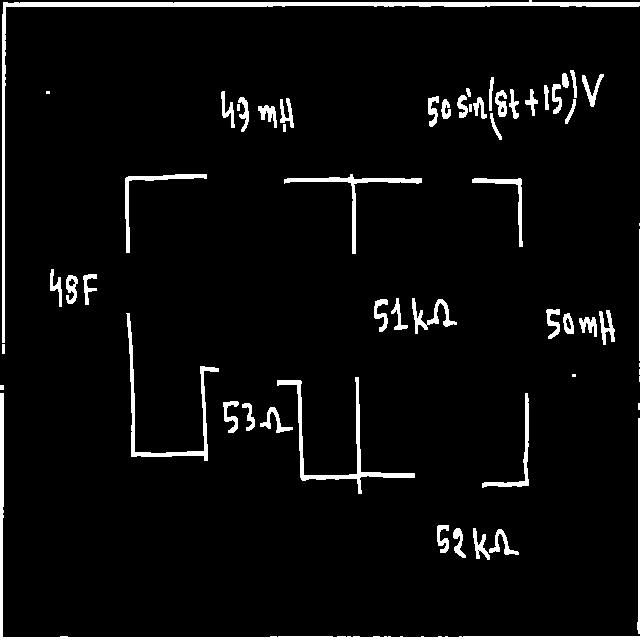 49 mH
50 sin(8t+15°) V
48F
51kΩ
50mH
53Ω
52kΩ